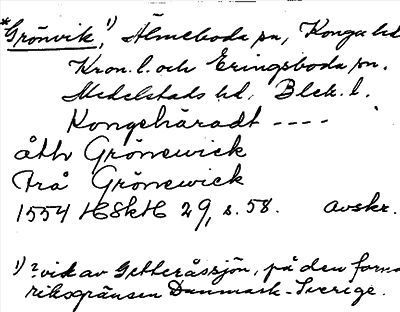 *Grönvik,¹⁾ Älmeboda sn, Konga hd
Kron. l. och Eringsboda sn.
Medelstads hd, Blek. l.
Kongehäradt ----
åth Grönewick
frå Grönewick
1554 HSkH 29, s. 58. avskr.
¹⁾ ? vik av Getteråssjön, på den forna
riksgränsen Danmark-Sverige.